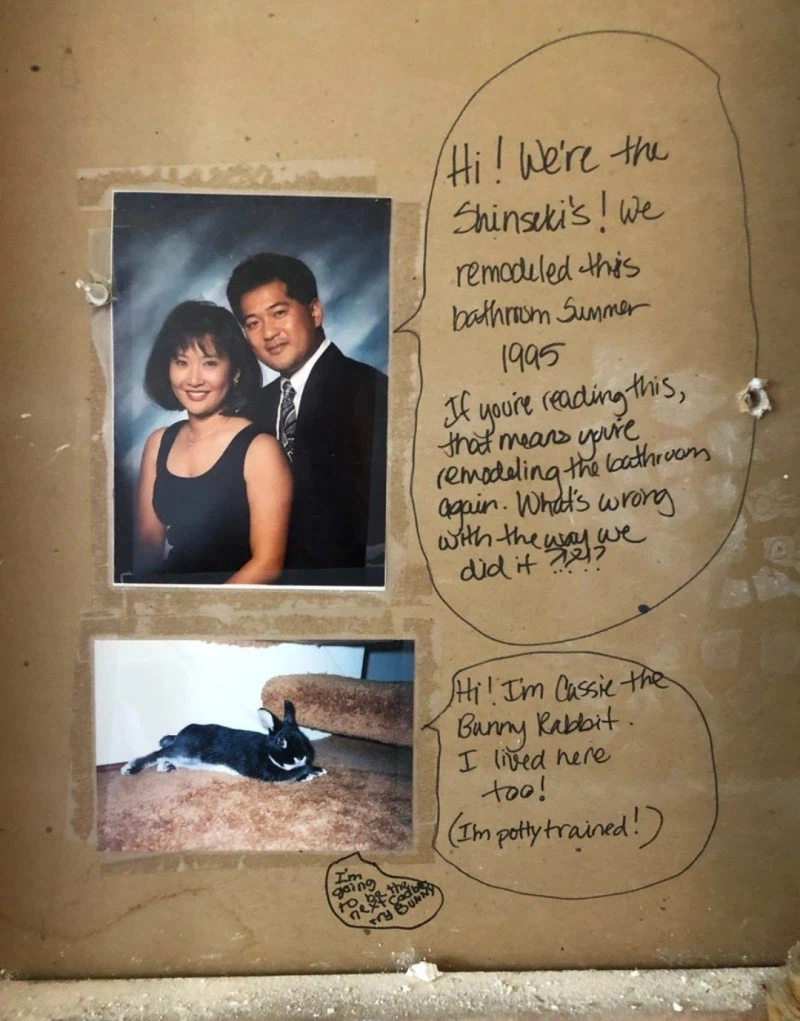 Hi! We're the
Shinseki's! We
remodeled this
bathroom Summer
1995
If you're reading this,
that means you're
remodeling the bathroom
again. What's wrong
with the way we
did it ?!?!?
Hi! I'm Cassie the
Bunny Rabbit.
I lived here
too!
(I'm potty trained!)
I'm
going
to be the
next Cadbe
rry Bunny